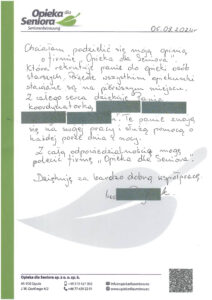 Opieka dla
Seniora
Seniorenbetreuung
05.08.2024
Chciałam podzielić się moją opinią
o firmie „Opieka dla Seniora"
Która rekrutuje panie do opieki osób
starszych. Przede wszystkim opiekunki
stawiane są na pierwszym miejscu.
Z całego serca dziękuję Panią
koordynatorką,
Te panie znają
się na swojej pracy i służą pomocą o
każdej porze dnia i nocy.
Z całą odpowiedzialnością mogę
polecić firmę „Opieka dla Seniora".
Dziękuję za bardzo dobrą współpracę
Opieka dla Seniora sp. z o. o. sp. k.
45-355 Opole
info@opiekadlaseniora.eu
www.opiekadlaseniora.eu